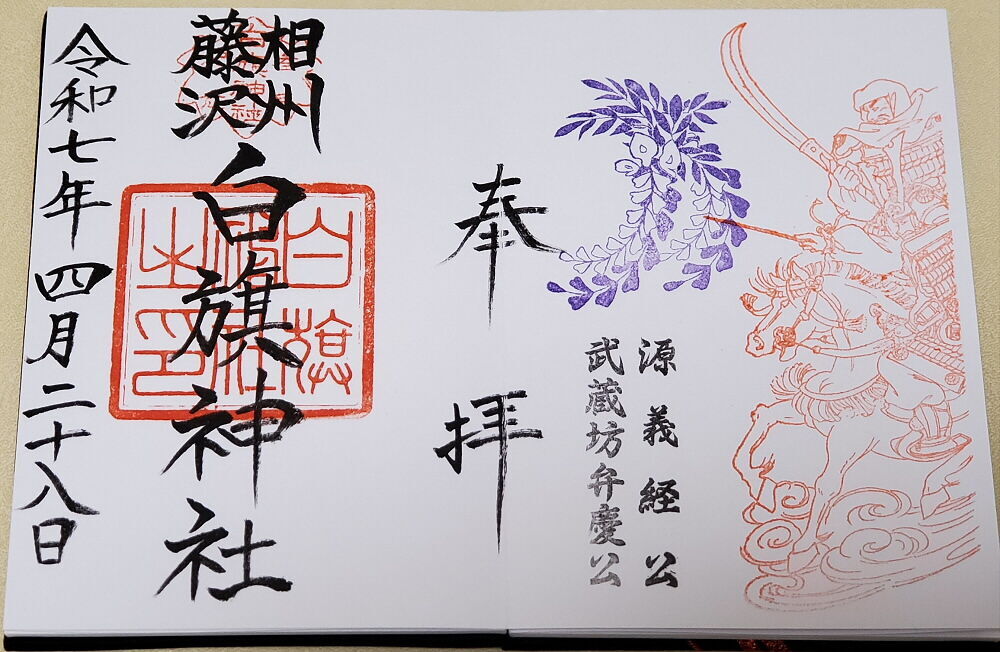 源義経公
武蔵坊弁慶公
奉拝
相州
藤沢
白旗神社
白旗神社之印
令和七年四月二十八日